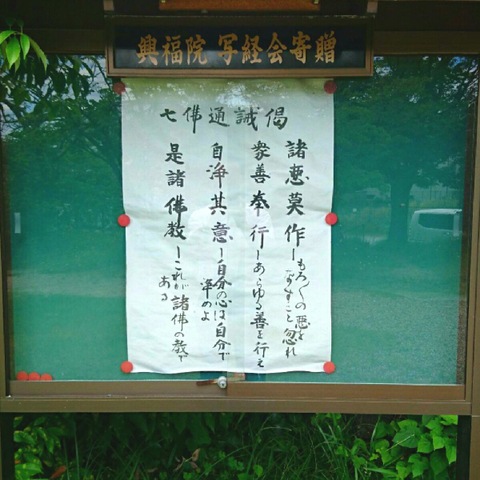 興福院 写経会寄贈
七佛通誡偈
諸悪莫作ーもろ〱の悪を
なすこと忽れ
衆善奉行ーあらゆる善を行え
自浄其意ー自分の心は自分で
浄めよ
是諸佛教ーこれが諸佛の教で
ある